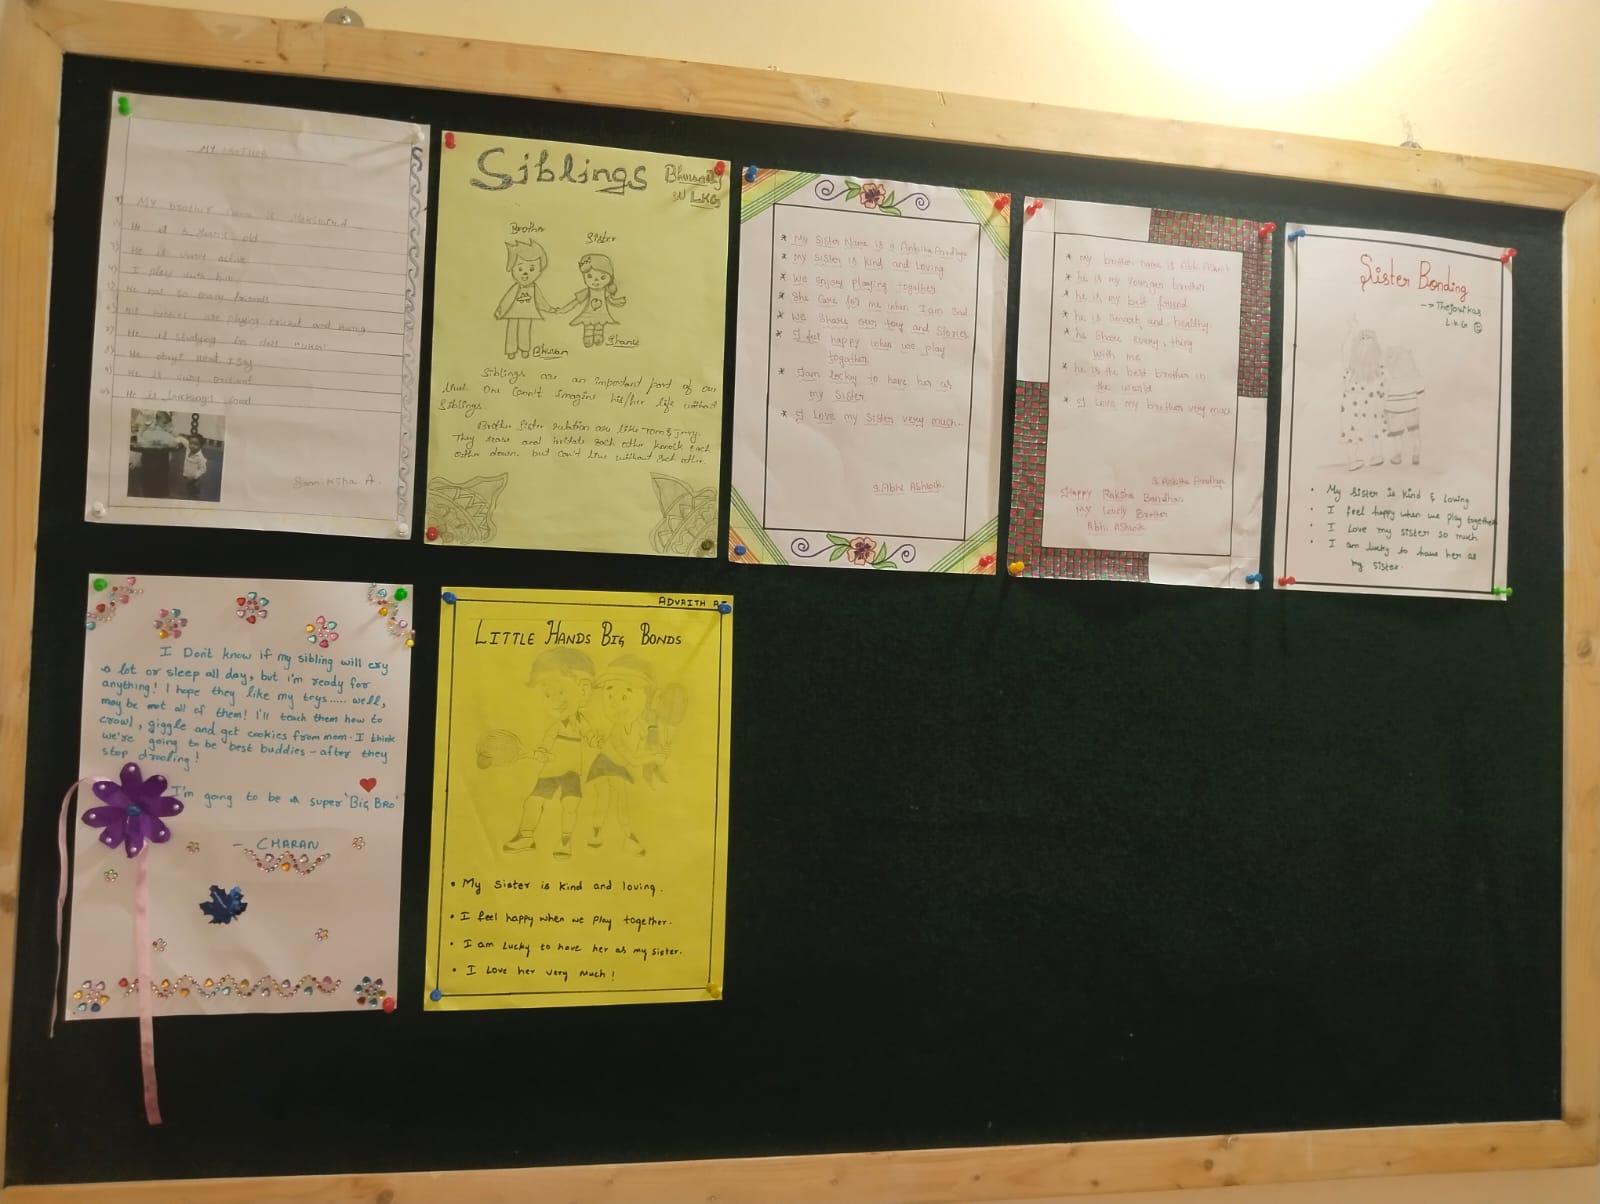 MY BROTHER
1) My brother name is
2) He is 5 years old
3) He is very active
4) I play with him
5) He has so many friends
6) His hobbies are playing cricket and
7) He is studying in
8) He obeys what I say
9) He is very
10) He is looking good
Samiksha A.
Siblings
LKG
Brother
Sister
Bhuvan
Siblings are an important part of our
One can't imagine his/her life without
Siblings.
Brother Sister relation are like Tom & Jerry.
They tease and irritate each other knock each
other down. but can't live without each other.
* My Sister Name is S Ankitha Aradhya
* My sister is kind and loving
* We enjoy playing together
* She Care for me when I am Sad
* We Share our toy and Stories
* I feel happy when we play
together
* I am locky to have her as
my Sister
* I Love my sister very much.
S. Abhi Ashwik
* My brother name is Abhi Ashwik
* he is my younger brother
* he is my best friend
* he is Smart and healthy
* he Share every, thing
with me
* he is the best brother in
the world
* I Love my brother very much
S. Ankitha Aradhya
Happy Raksha Bandhan
My Lovely Brother
Abhi Ashwik
Sister Bonding
L.K.G
• My sister is kind & Loving
• I feel happy when we play together
• I Love my sister so much
• I am lucky to have her as
my sister.
I Don't know if my sibling will cry
a lot or sleep all day, but I'm ready for
anything! I hope they like my toys..... well,
may be not all of them! I'll teach them how to
crawl, giggle and get cookies from mom. I think
we're going to be best buddies - after they
stop drooling!
I'm going to be a super 'Big Bro'
- CHARAN
ADVAITH
LITTLE HANDS BIG BONDS
• My Sister is kind and loving.
• I feel happy when we play together.
• I am Lucky to have her as my sister.
• I Love her very Much!